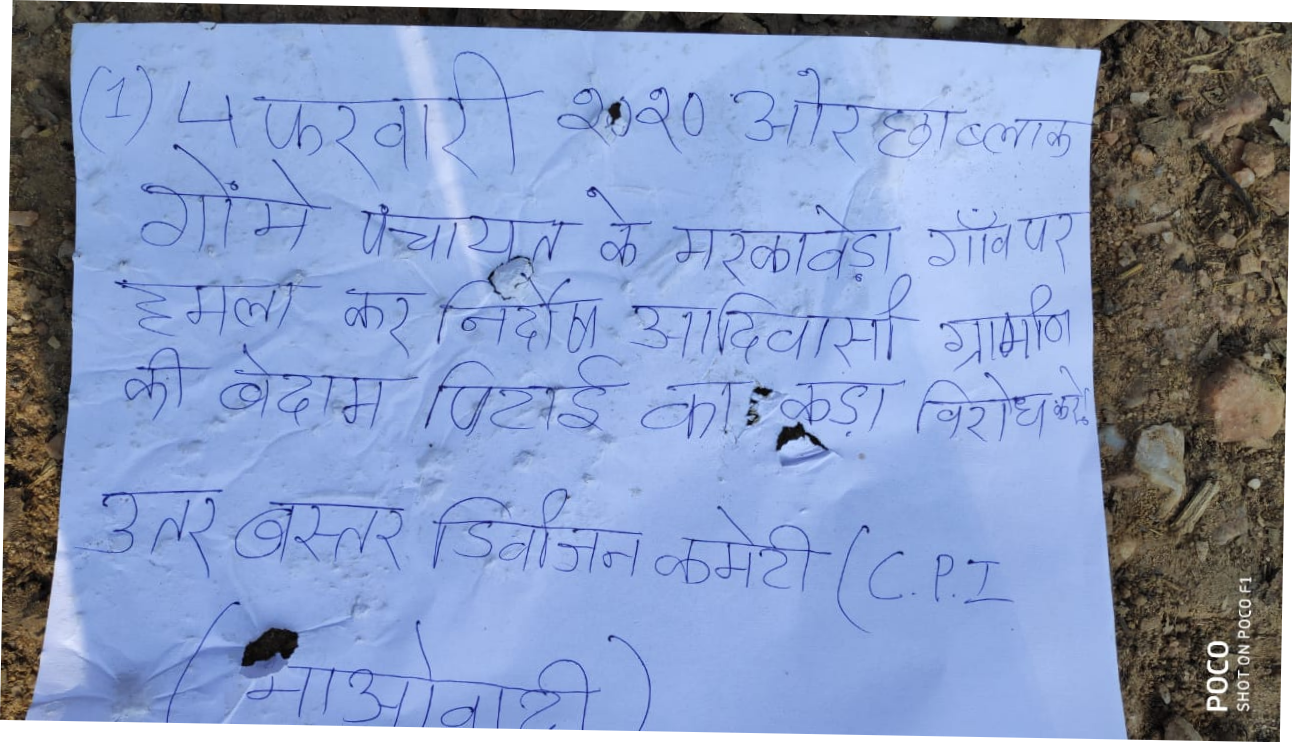 (1) 4 फरवारी २०२० ओर छा ब्लाक
गोंमे पंचायत के मरकावेड़ा गाँव पर
हमला कर निर्दोष आदिवासी ग्रामीण
की बेदाम पिटाई का कड़ा विरोध करें
उतर बस्तर डिवीजन कमेटी (C.P.I
(माओवादी)
POCO
SHOT ON POCO F1